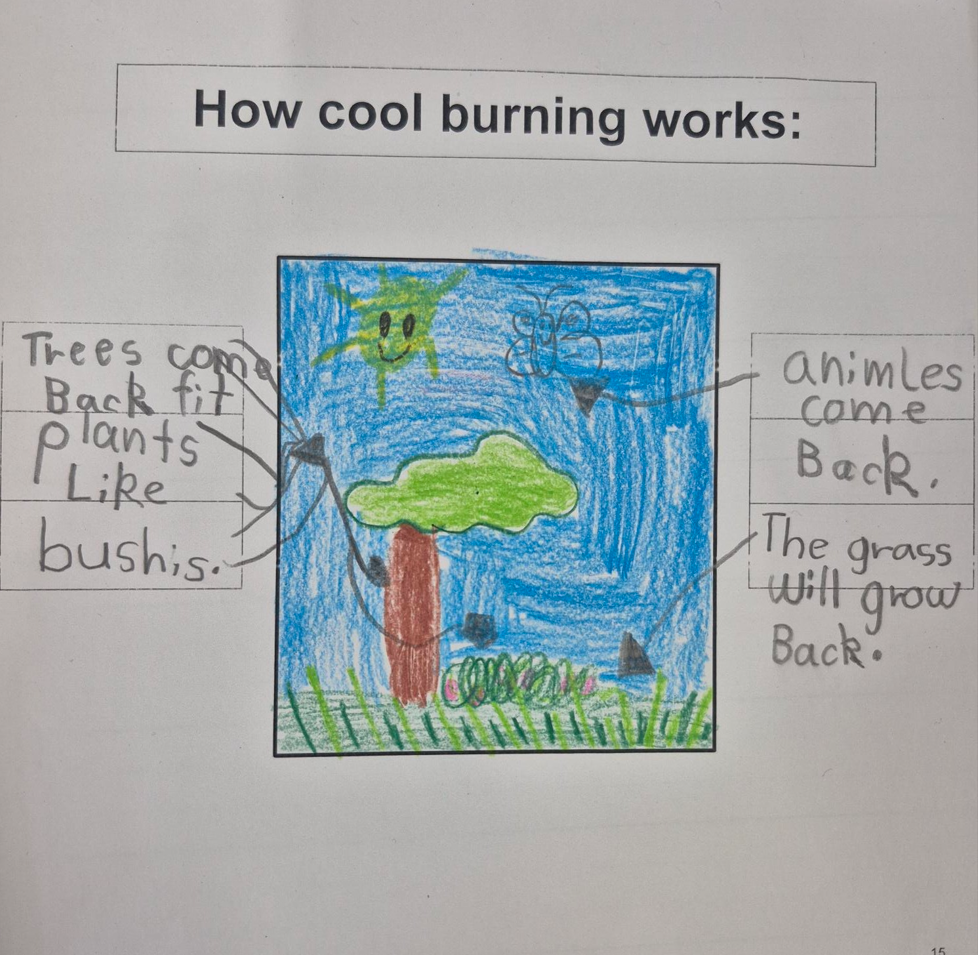 How cool burning works:
Trees come
Back fit
plants
Like
bushis.
animles
come
Back.
The grass
will grow
Back.
15